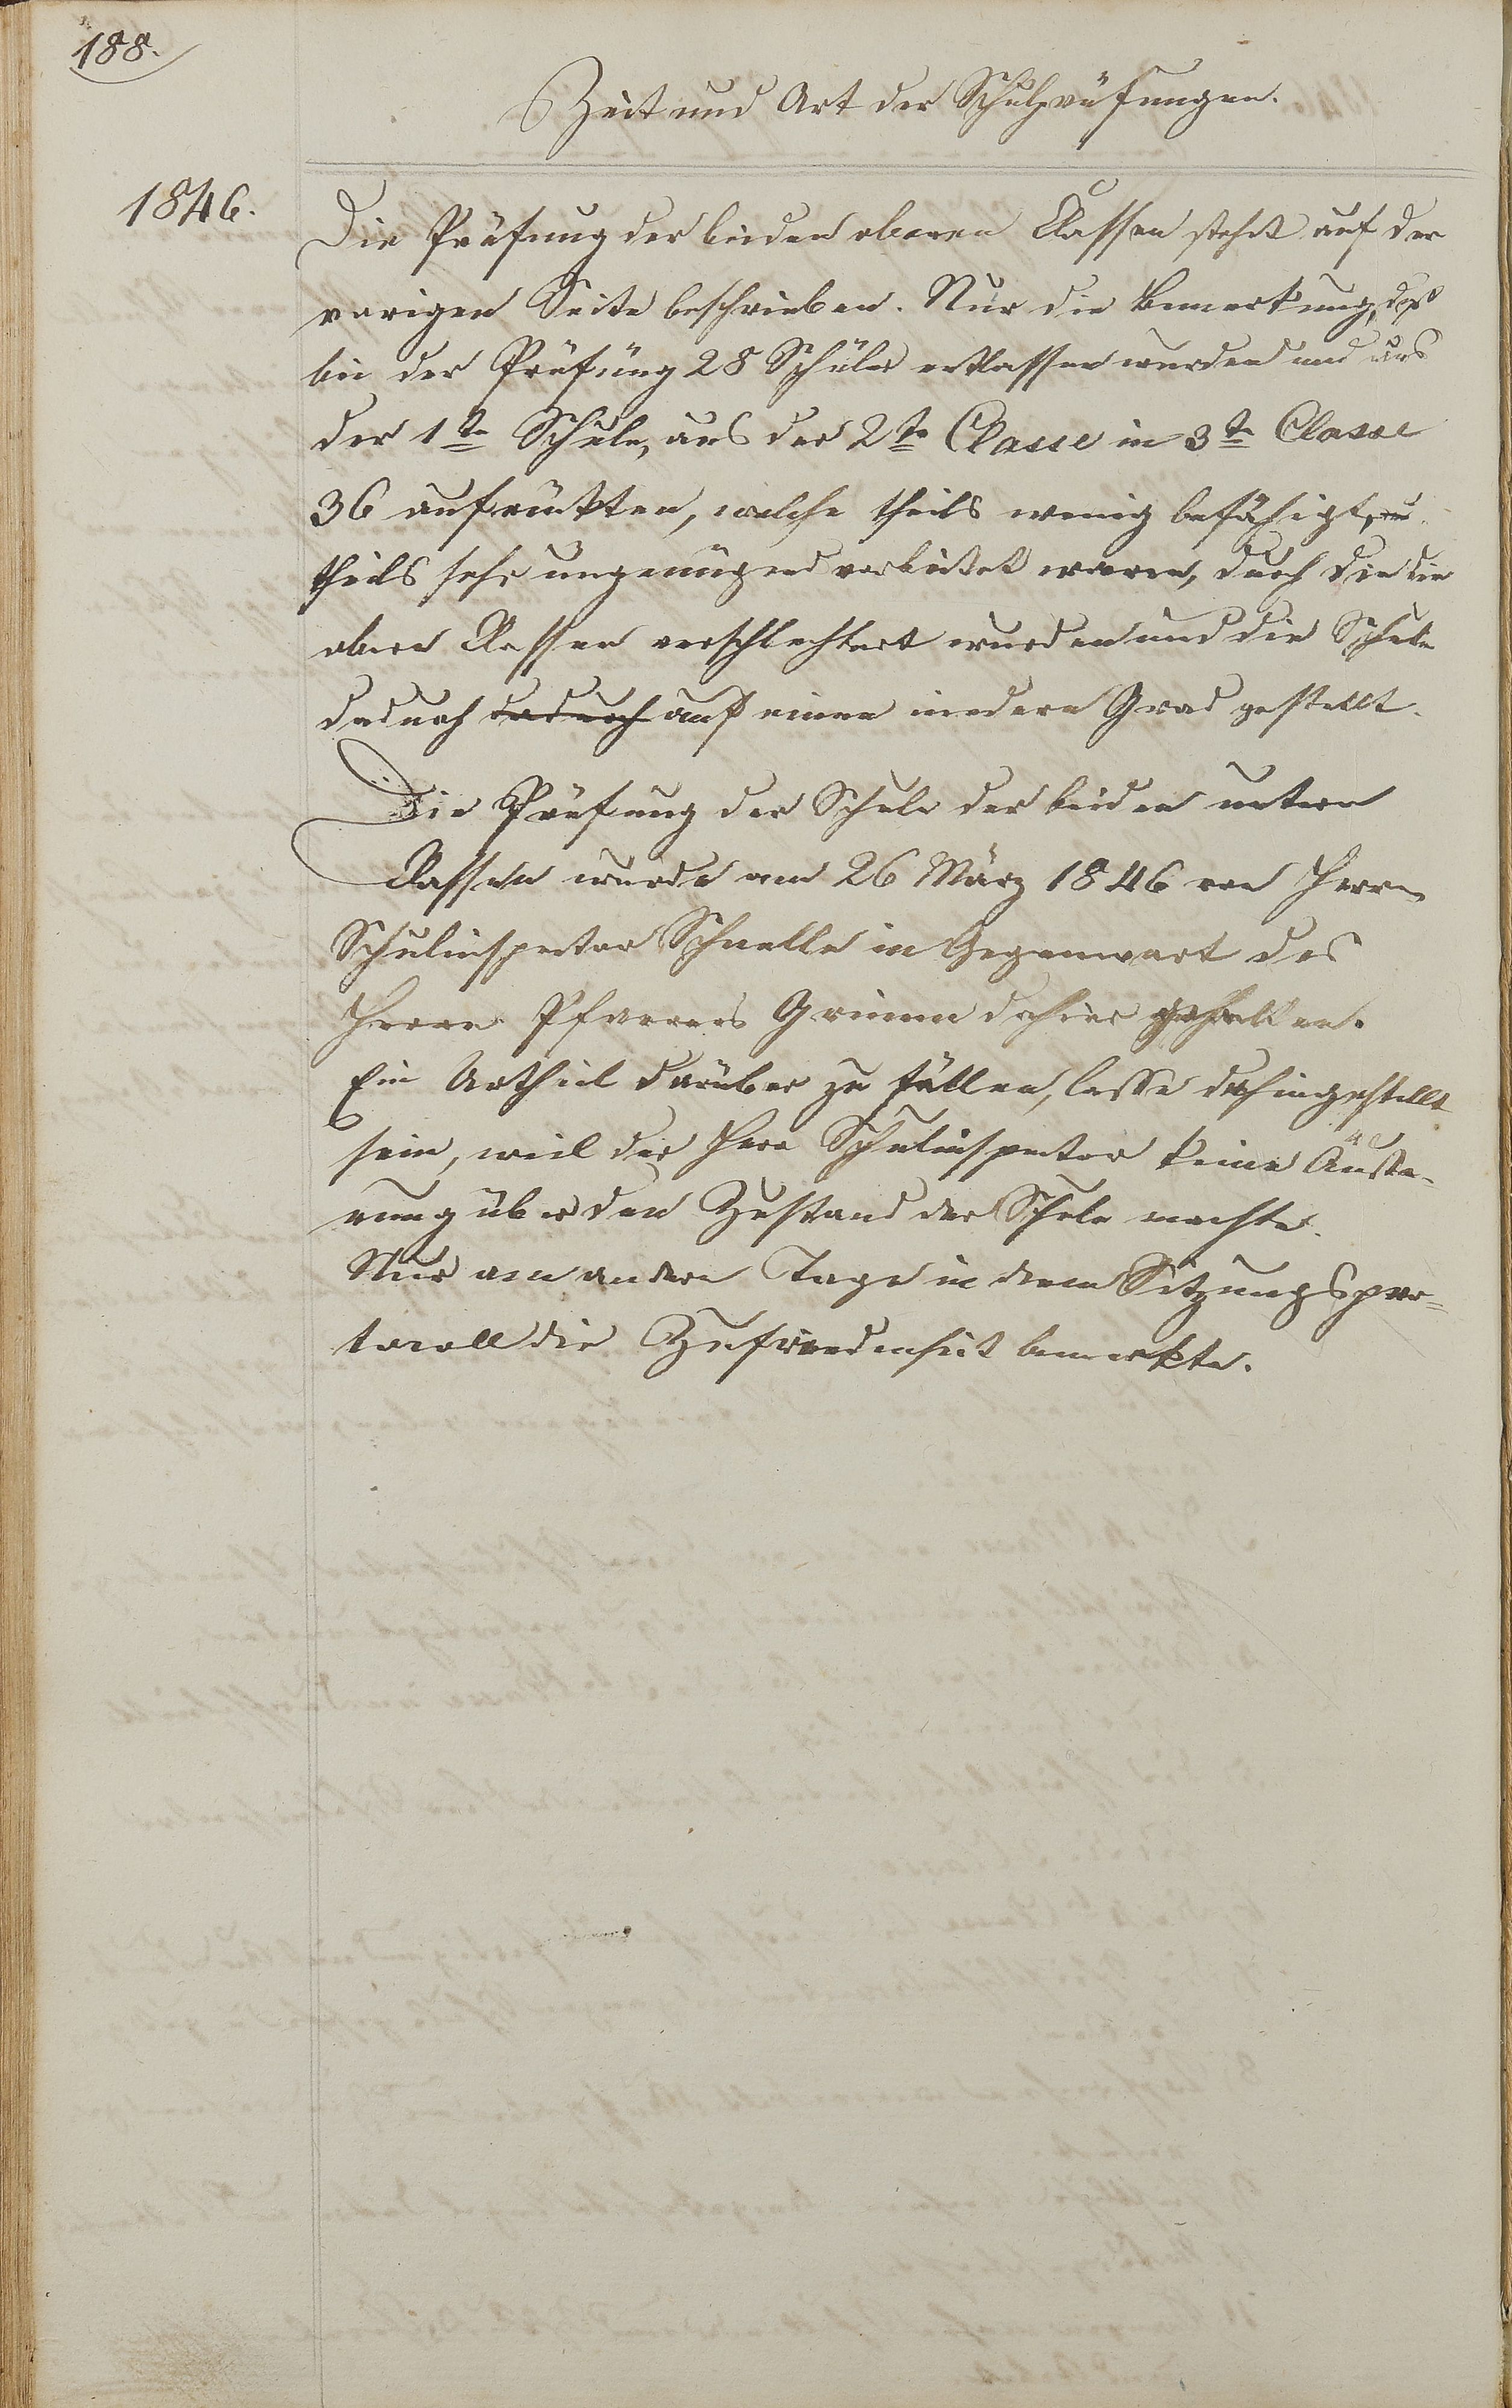 188.
Zeit und Art der Schulprüfungen.
1846.
Die Prüfung der beiden oberen Classen steht auf der
vorigen Seite beschrieben. Nur die Bemerkung, daß
bei der Prüfung 28 Schüler entlassen wurden und aus
der 1te Schule, aus der 2te Classe in 3te Classe
36 aufrückten, welche theils wenig befähigt, u
theils sehr ungenügend vorbereitet waren, durch die die
obere Classen verschlechtert wurden und die Schule
dadurch dadurch auf einen niedern Grad gestellt.
Die Prüfung der Schule der beiden untern
Classen wurde am 26 März 1846 von Herrn
Schulinspector Schnelle in Gegenwart des
Herrn Pfarrers Grimm dahier gehalten.
Ein Urtheil darüber zu fällen, lasse dahingestellt
sein, weil der Herr Schulinspector keine Äuße-
rung über den Zustand der Schule machte.
Nur am andern Tage in dem Sitzungspro=
tocoll die Zufriedenheit bemerkte.